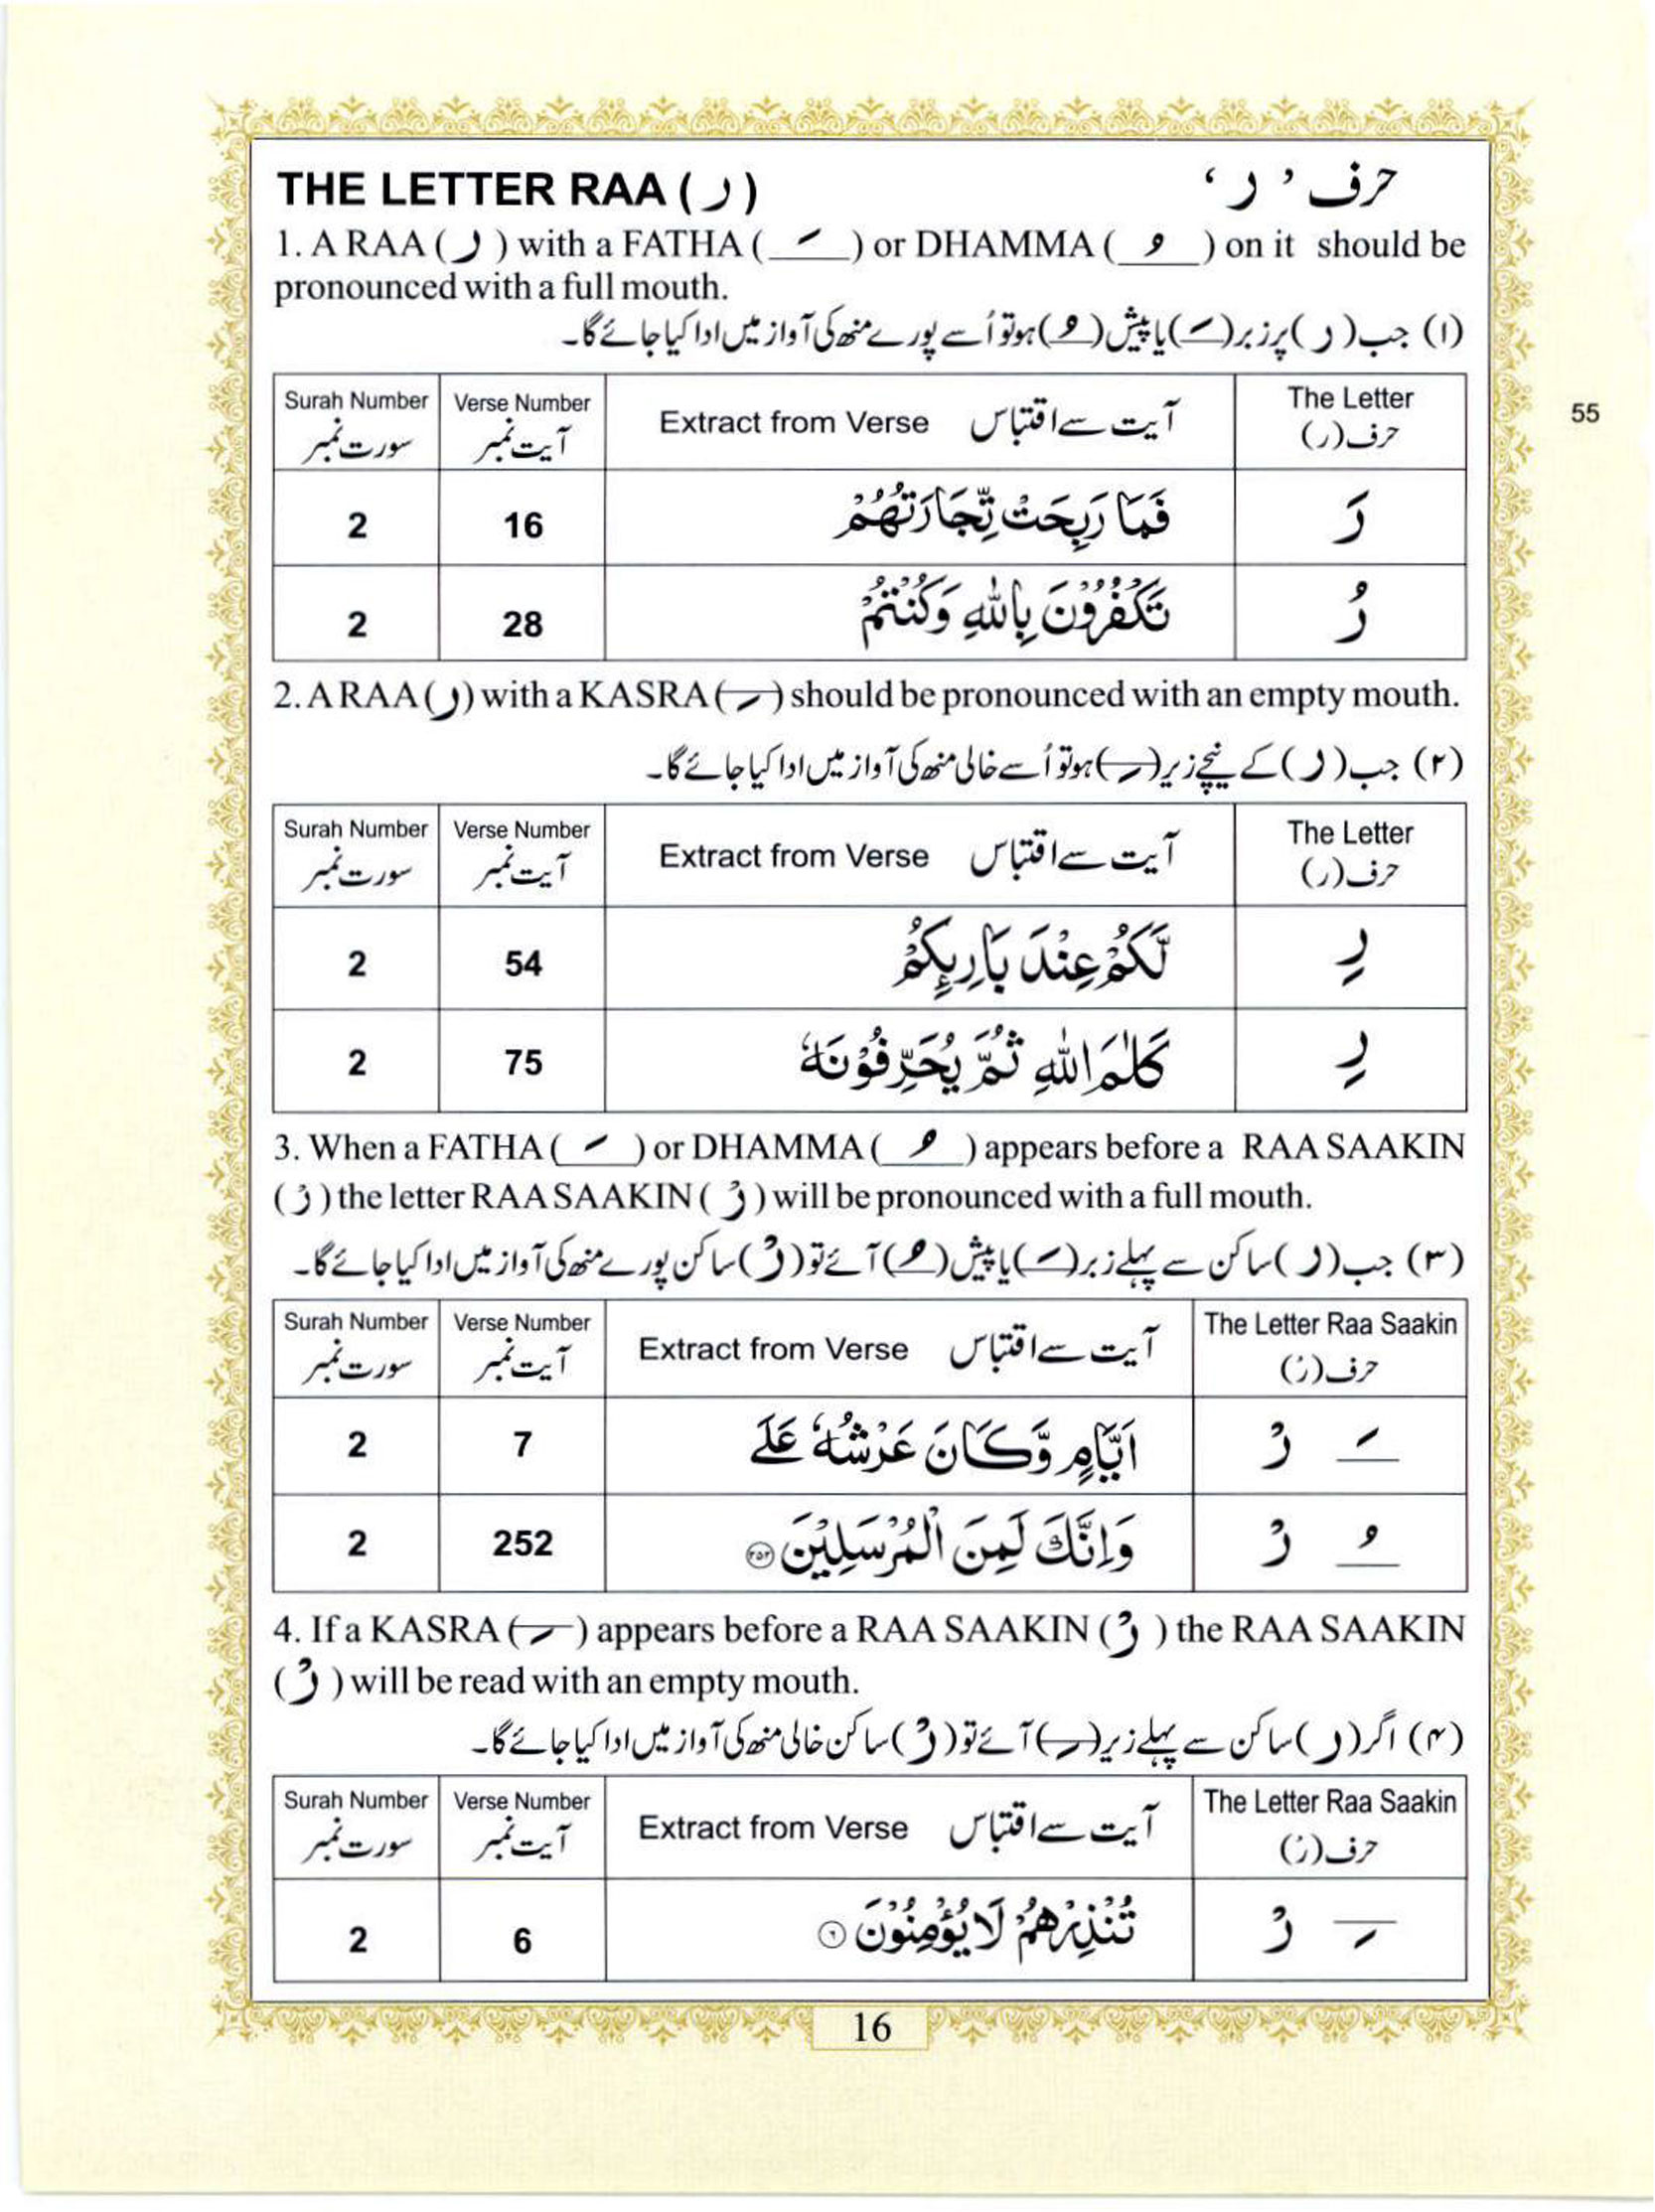 THE LETTER RAA ( ر ) حرف ’ ر ‘
1. A RAA ( ر ) with a FATHA ( َ ) or DHAMMA ( ُ ) on it should be
pronounced with a full mouth.
(۱) جب( ر )پرزبر( َ )یا پیش( ُ )ہوتو اُسے پورے منھ کی آواز میں ادا کیا جائے گا۔
Surah Number Verse Number Extract from Verse آیت سے اقتباس The Letter
سورت نمبر آیت نمبر حرف(ر)
55
2 16 فَمَا رَبِحَتْ تِّجَارَتُهُمْ رَ
2 28 تَكْفُرُوْنَ بِاللّٰهِ وَكُنْتُمْ رُ
2. A RAA ( ر ) with a KASRA ( ِ ) should be pronounced with an empty mouth.
(۲) جب( ر )کے نیچے زیر( ِ )ہوتو اُسے خالی منھ کی آواز میں ادا کیا جائے گا۔
Surah Number Verse Number Extract from Verse آیت سے اقتباس The Letter
سورت نمبر آیت نمبر حرف(ر)
2 54 لَّكُمْ عِنْدَ بَارِىِٕكُمْ رِ
2 75 كَلٰمَ اللّٰهِ ثُمَّ يُحَرِّفُوْنَهٗ رِ
3. When a FATHA ( َ ) or DHAMMA ( ُ ) appears before a RAA SAAKIN
( رْ ) the letter RAA SAAKIN ( رْ ) will be pronounced with a full mouth.
(۳) جب( ر )ساکن سے پہلے زبر( َ )یا پیش( ُ )آئے تو( رْ )ساکن پورے منھ کی آواز میں ادا کیا جائے گا۔
Surah Number Verse Number Extract from Verse آیت سے اقتباس The Letter Raa Saakin
سورت نمبر آیت نمبر حرف(رْ)
2 7 اَيَّامٍ وَّكَانَ عَرْشُهٗ عَلَى َ رْ
2 252 وَاِنَّكَ لَمِنَ الْمُرْسَلِيْنَ ۲۵۲ ُ رْ
4. If a KASRA ( ِ ) appears before a RAA SAAKIN ( رْ ) the RAA SAAKIN
( رْ ) will be read with an empty mouth.
(۴) اگر( ر )ساکن سے پہلے زیر( ِ )آئے تو( رْ )ساکن خالی منھ کی آواز میں ادا کیا جائے گا۔
Surah Number Verse Number Extract from Verse آیت سے اقتباس The Letter Raa Saakin
سورت نمبر آیت نمبر حرف(رْ)
2 6 تُنْذِرْهُمْ لَا يُؤْمِنُوْنَ ۶ ِ رْ
16